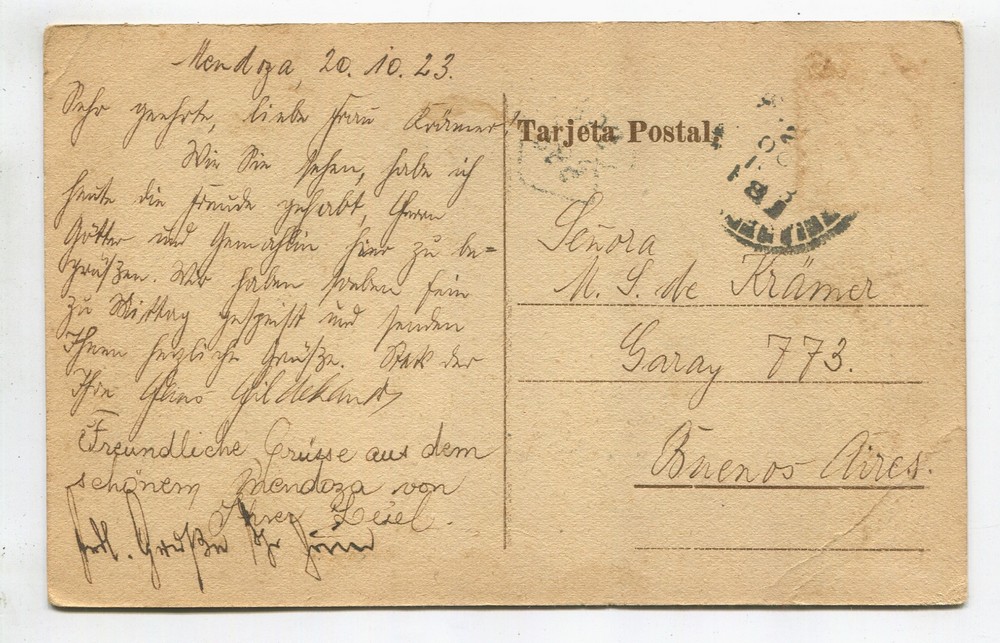 Mendoza, 20. 10. 23.
Sehr geehrte, liebe Frau Krämer!
Wie Sie sehen, habe ich
heute die Freude gehabt, Herrn
Götter und Gemahlin hier zu be=
grüßen. Wir haben soeben fein
zu Mittag gespeist und senden
Ihnen herzliche Grüße. Stets der
Ihre Hans Hildebrandt
Freundliche Grüsse aus dem
schönem Mendoza von
Ihrer Lesel.
Grüße Ihr
Tarjeta Postal
Señora
M. S. de Krämer
Garay 773.
Buenos Aires.